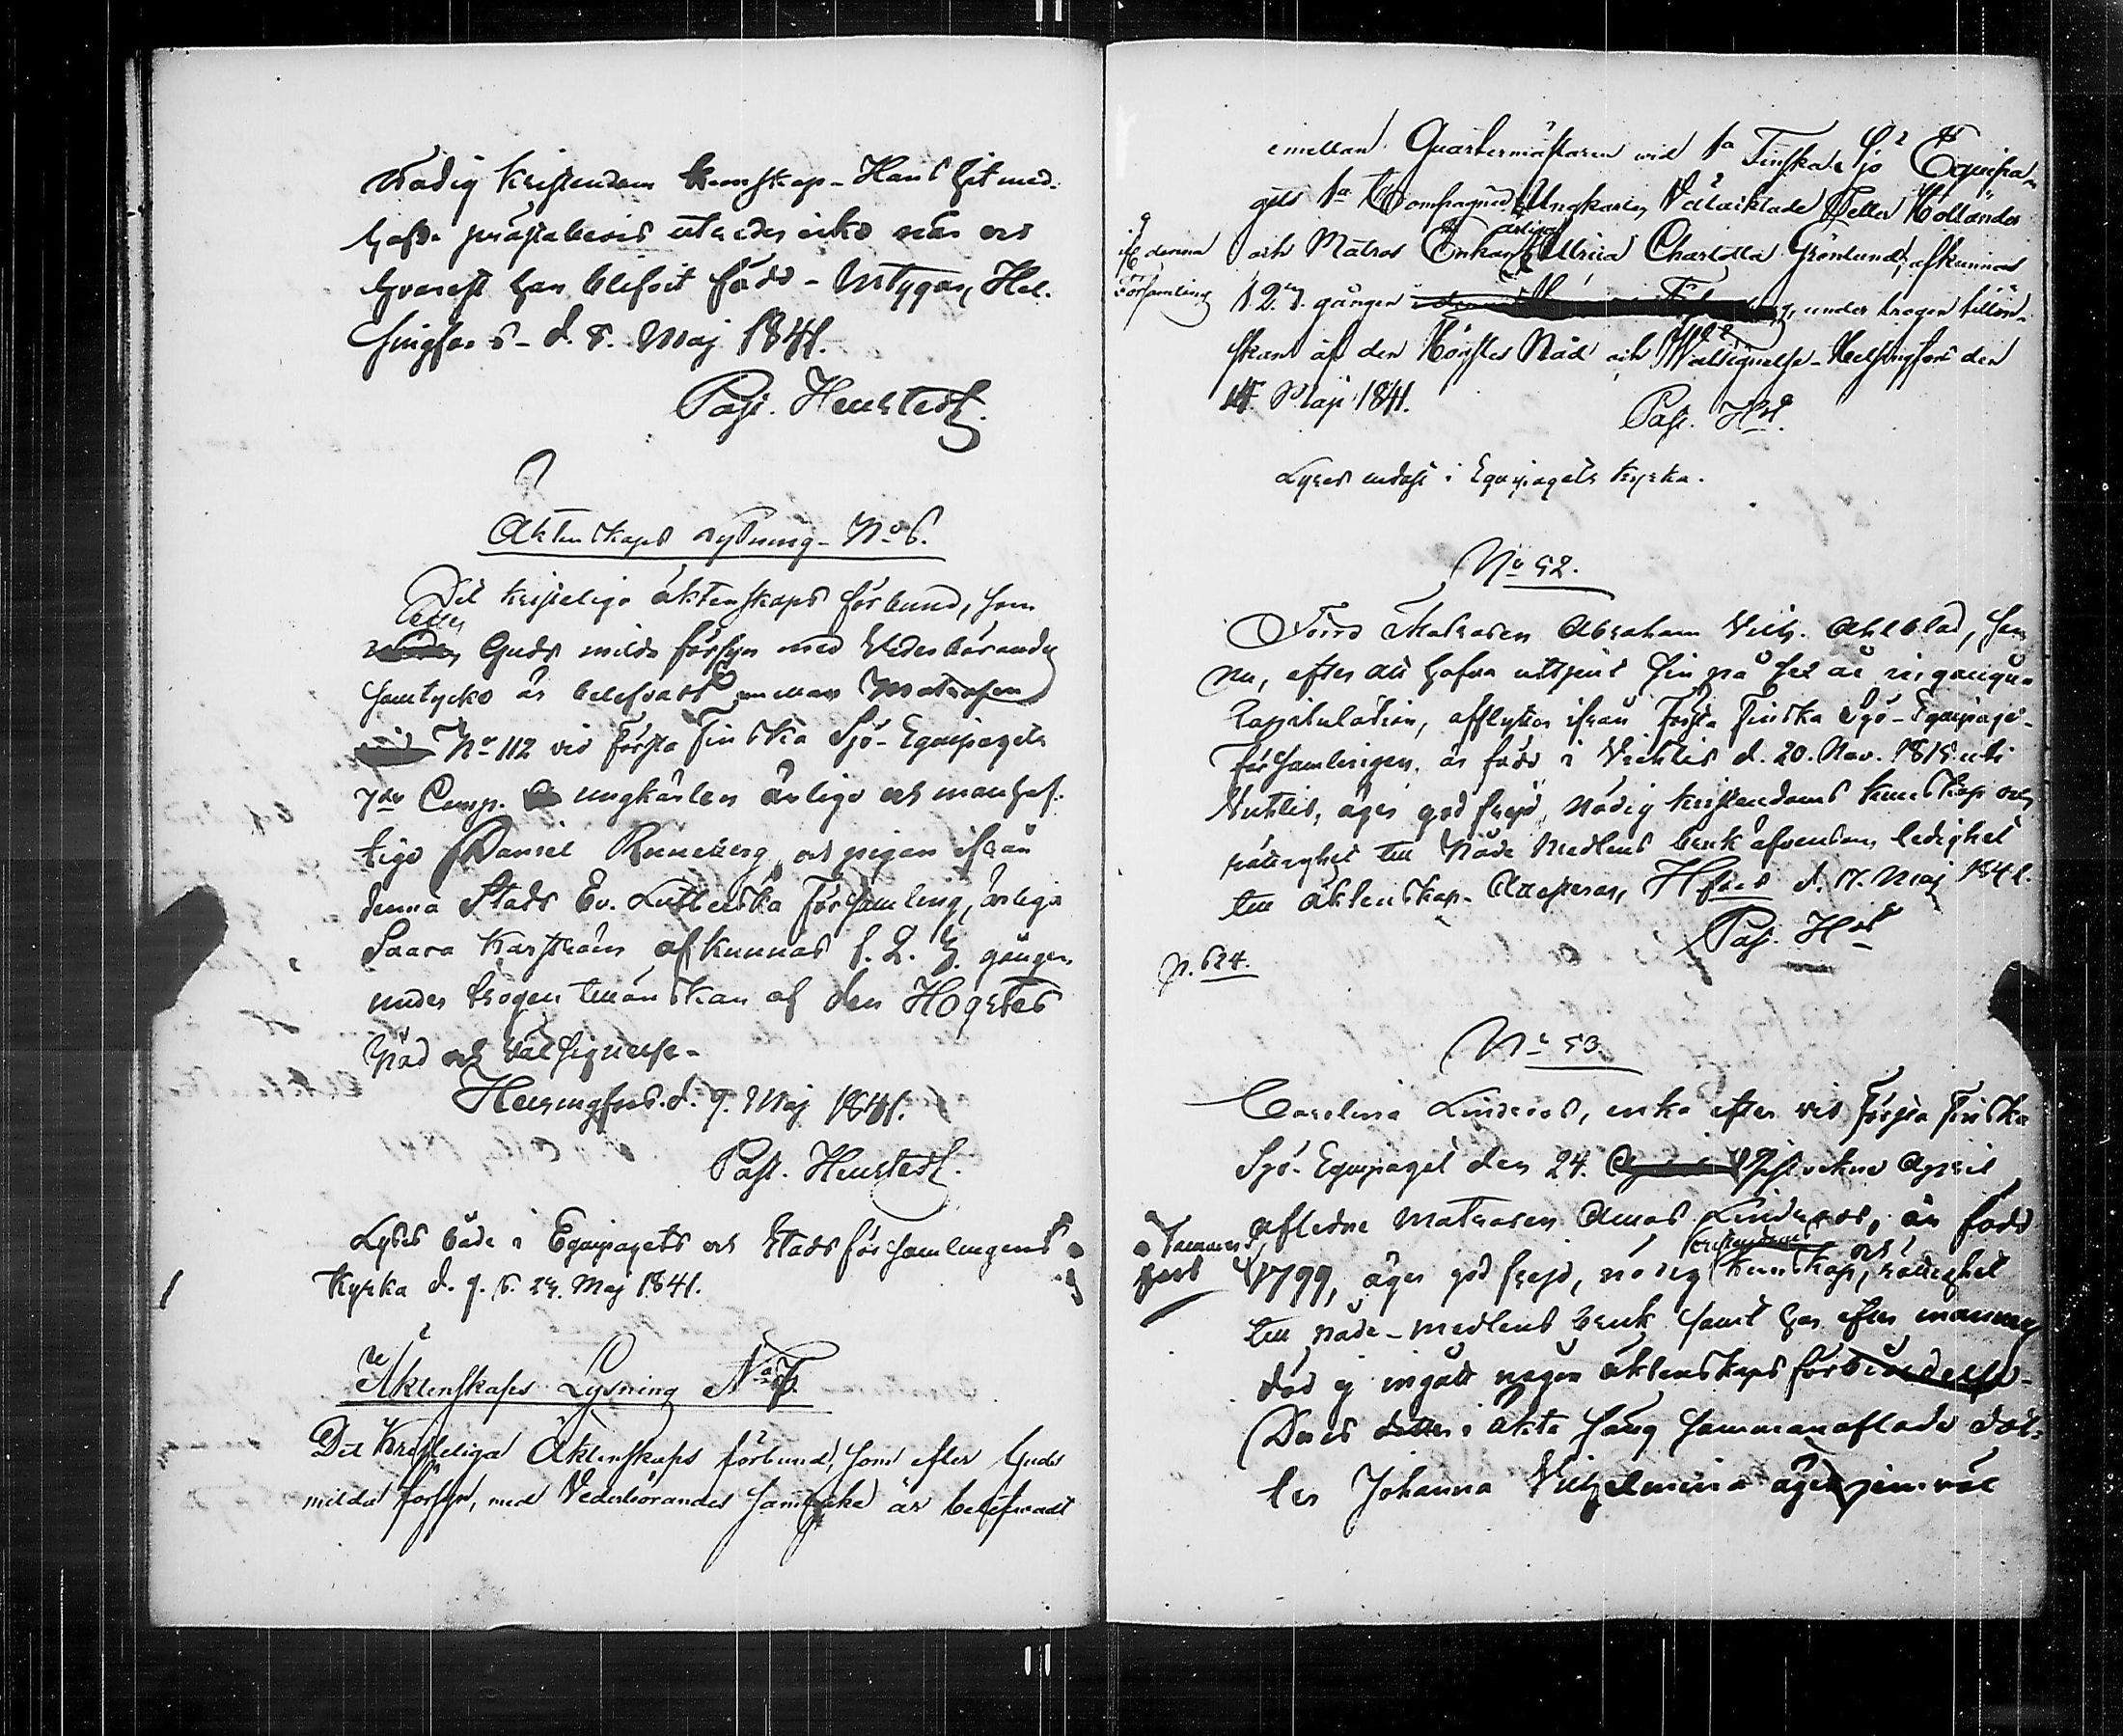 nödig kristendoms kunskap. Hans hit med-
hafda prästabevis utreder icke när och
hvarest han blifvit född - Intygar, Hel-
singfors d. 8. Maj 1841.
Past. Heurstedt.
Äktenskaps Lysning - No 6.
Det kristeliga äktenskaps förbund, som
efter
Guds milda försyn med Vederbörandes
samtycke är belefvadt emellan Matrosen
No 112 vid Första Finska Sjö-Equipagets
7de Comp. ungkarlen ärlige och manhaf-
tige Daniel Runeberg och pigan ifrån
denna Stads Ev. Lutherska Församling, ärliga
Saara Karström afkunnas 1. 2. 3. gången
under trogen tillönskan af den Högstes
Nåd och Välsignelse -
Helsingfors. d. 9. Maj 1841.
Past. Heurstedt.
Lystes både i Equipagets och Stads församlingens
Kyrka d. 9. 16. 23. Maj 1841.
Äktenskaps Lysning No 7.
Det Kristeliga Äktenskaps förbund, som efter Guds
milda försyn, med Vederbörandes samtycke är belefvadt
emellan Quartermästaren vid 1a Finska Sjö Equipa-
gets 1a Compagnie Ungkarlen Välaktade Höllander
ärliga
och Matros Enkan Ulrica Charlotta Grönlund, afkunnas
if denna
Församling
1 2. 3. gången under trogen tillön-
skan af den Högstes Nåd och Välsignelse - Helsingfors den
15 Maji 1841.
Past. Hdt.
Lystes endast i Equipagets Kyrka.
No 52.
Förre Matrosen Abraham Vilh. Ahlblad, som
nu, efter att hafva uttjent sin på sex år ingångna
Capitulation, afflyttar ifrån Första Finska Sjö-Equipage-
församlingen, är född i Vichtis d. 20. Nov. 1815 uti
Vichtis, äger god frejd, nödig kristendoms kunskap och
rättighet till Nåde Medlens bruk äfvensom ledighet
till äktenskap. Attesteras, H:fors d. 17. Maj 1841.
Past. Hdt
p. 624.
No 53
Carolina Lindroos, enka efter vid Första Finska
Sjö-Equipaget den 24. sistvekne April
aflidne Matrosen Amos Lindroos, är född
Tammer-
fors
1799, äger god frejd, nödig kunskap, och rättighet
till nåde-medlens bruk samt har efter mannens
död ej ingått någon äktenskaps förbindelse -
Deras i äkta säng sammanaflade dot-
ter Johanna Vilhelmina äger jemväl